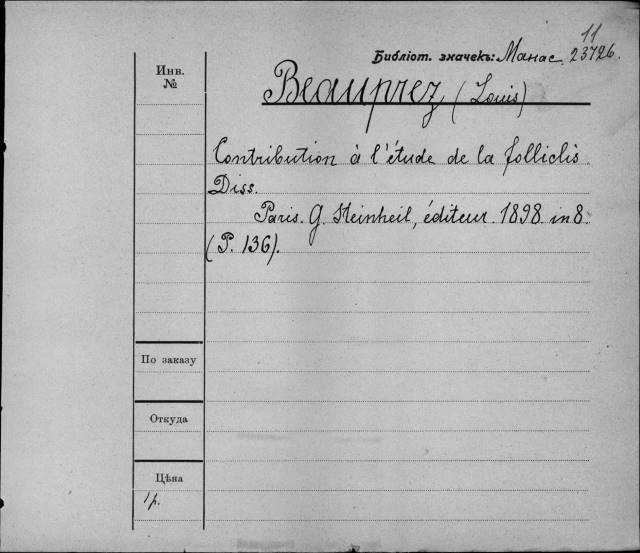 11
Библіот. значекъ: Манас. 23726.
Инв.
№
Beauprez (Louis)
Contribution à l'étude de la folliclis.
Diss.
Paris. G. Steinheil, éditeur. 1898. in 8.
(P. 136).
По заказу
Откуда
Цѣна
1 р.